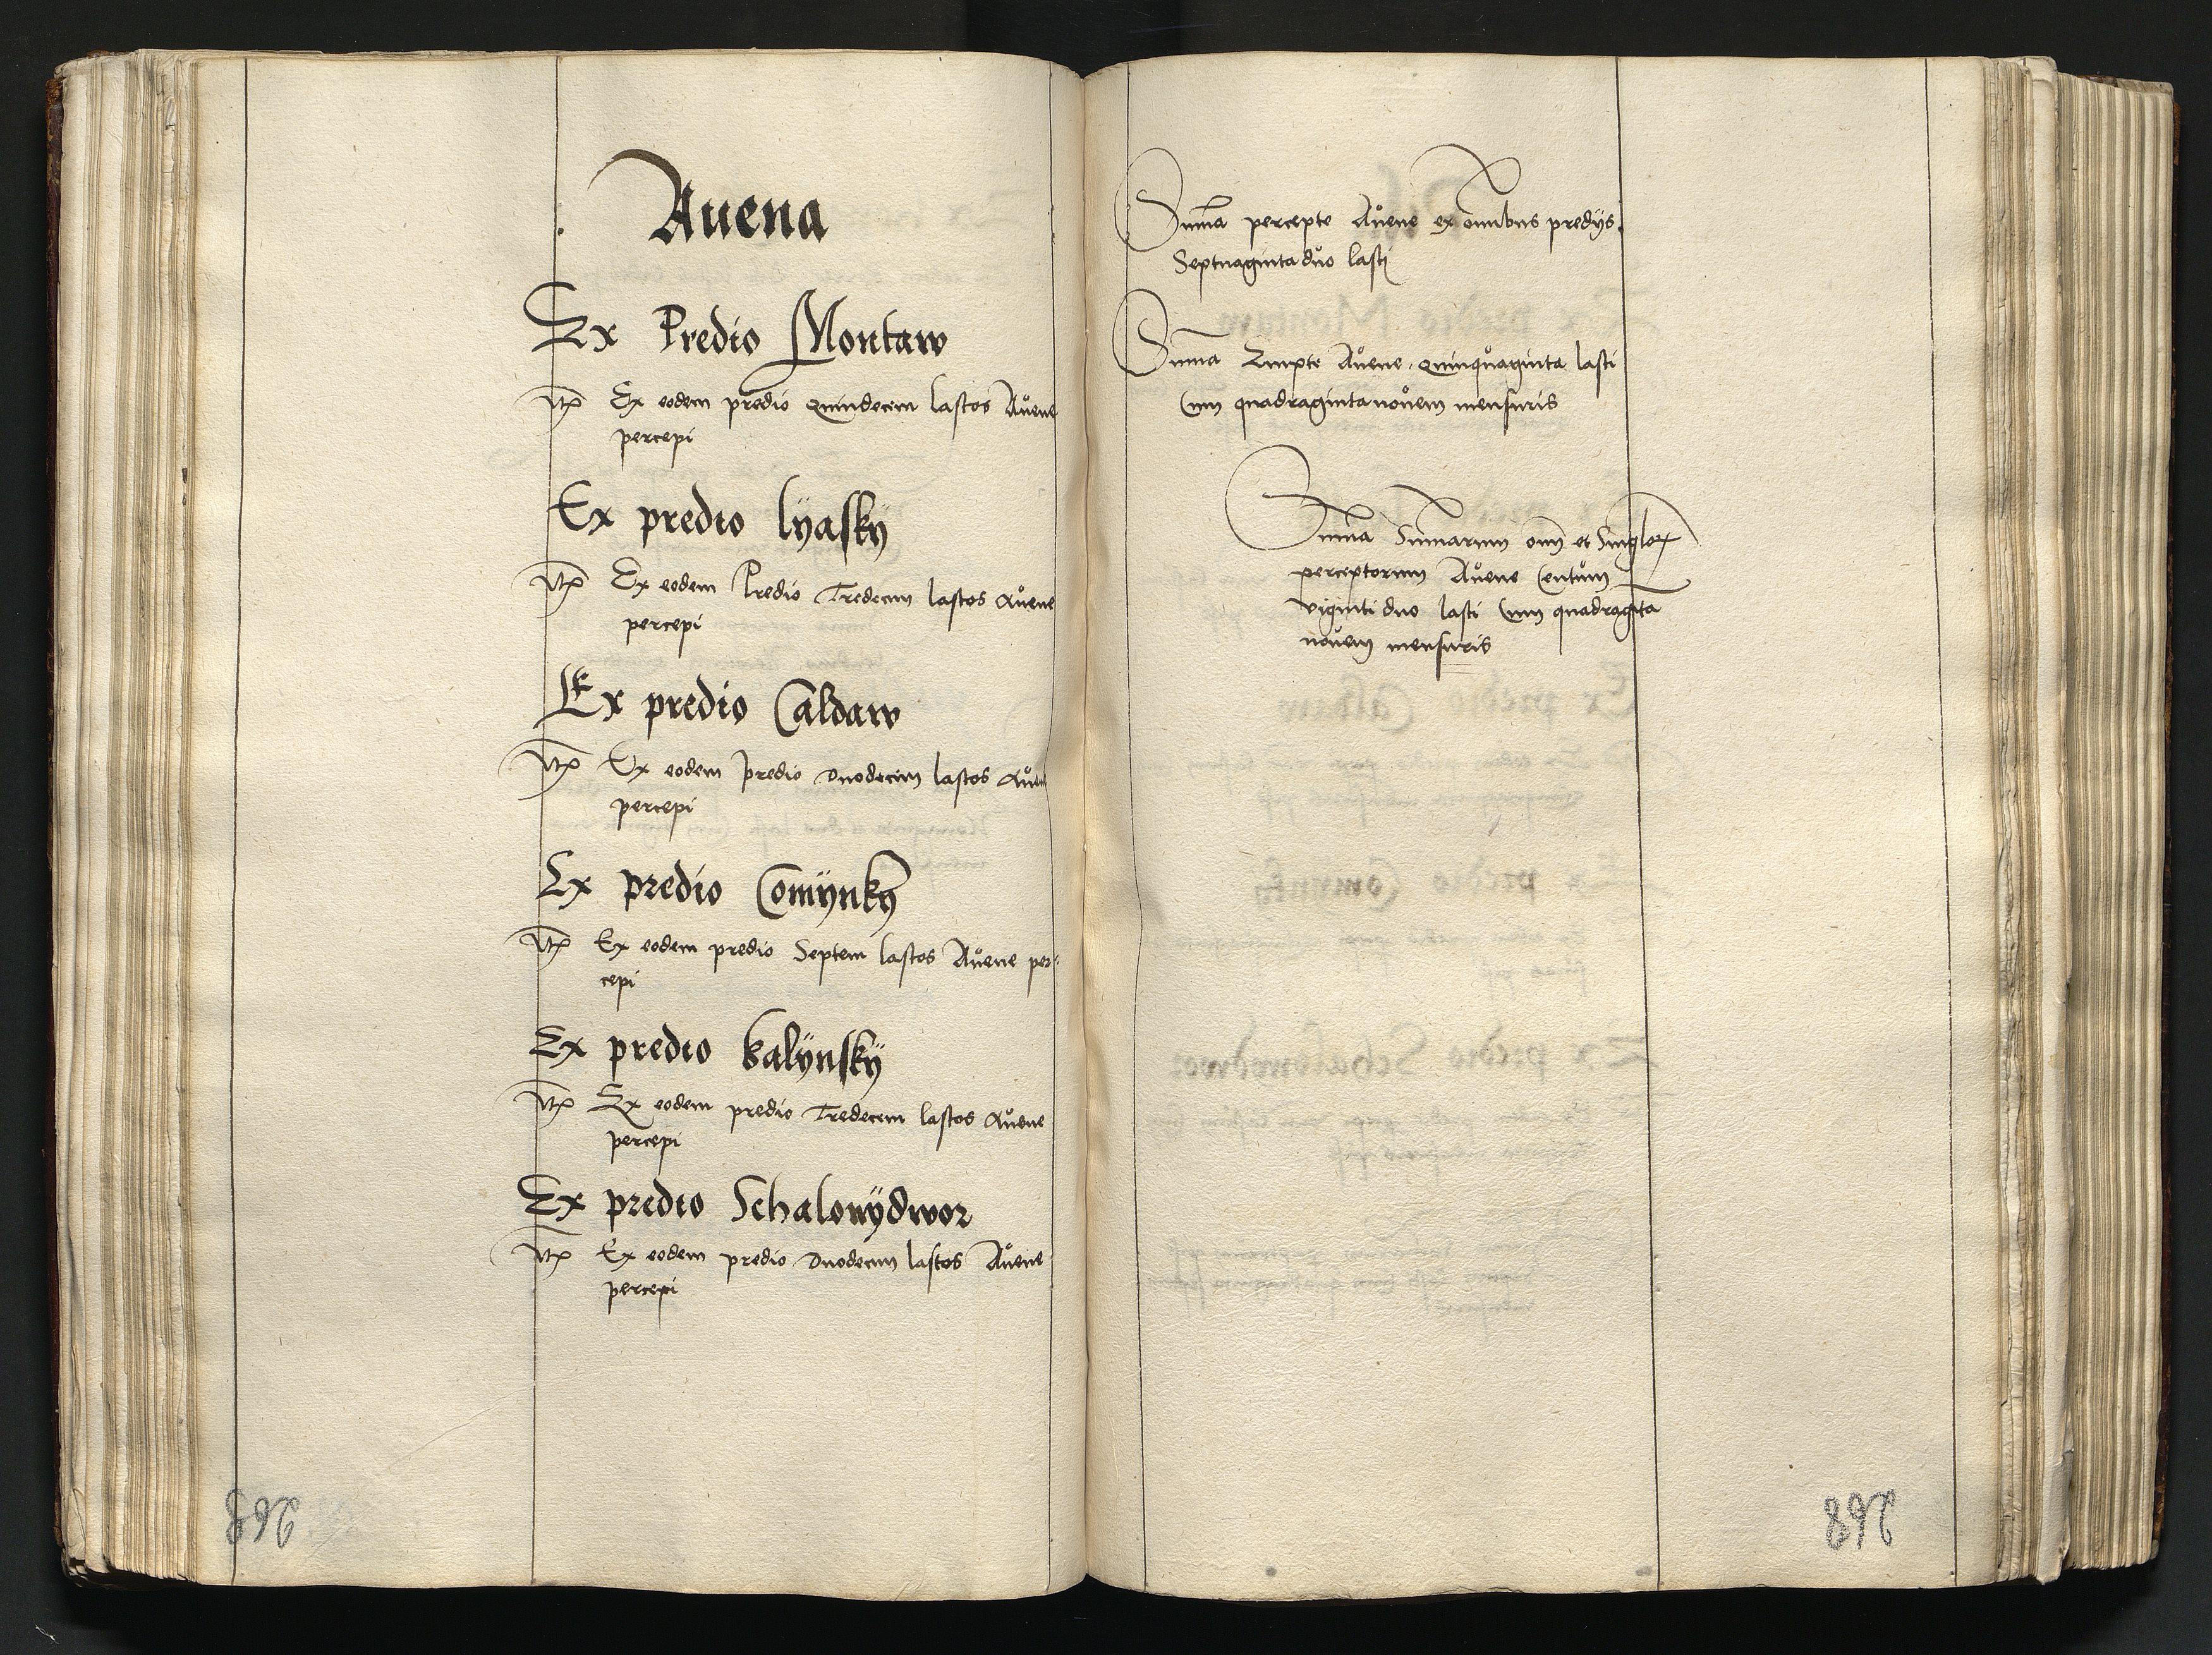 Auena
Ex Predio Montaw
Itē Ex eodem predio Quindecim lastos Aůene
percepi
Ex predio lÿaskÿ
Itē Ex eodem Predio Tredecim lastos aůene
percepi
Ex predio Caldaw
Itē Ex eodem predio Duodecim lastos aůen
percepi
Ex predio Comÿnkÿ
Itē Ex eodem predio Septem lastos Aůene per-
cepi
Ex predio kalÿnskÿ
Itē Ex eodem predio Tredecem lastos aůene
percepi
Ex predio Schalowÿdwor
Itē Ex eodem predio Duodecim lastos Aůene
percepi
Suma percepte Aůene ex omībus predÿs
Septuaginta důo lasti
Suma Empte Aůene Quinquaginta lasti
Cum quadraginta noůem mensuris
Suma Sumarum omī et Singlorꝝ
perceptorum Aůene Centům
viginti duo lasti Cum quadragīta
noůem mensuris
268
268